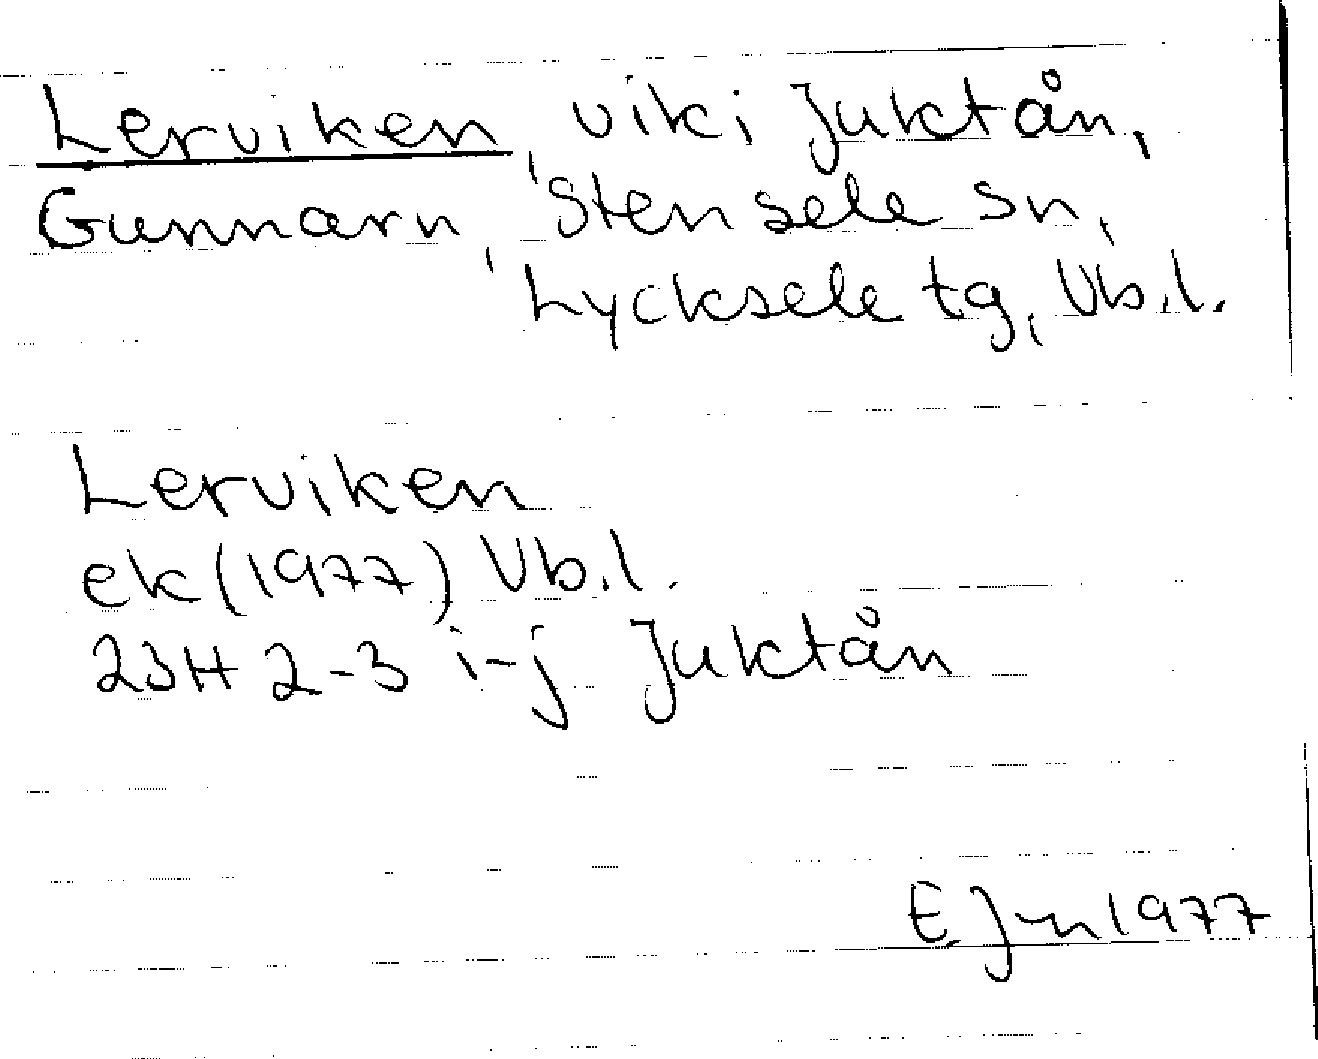 Lerviken, vik i Juktån,
Gunnarn, Stensele sn,
Lycksele tg, Vb.l.
Lerviken
ek (1977) Vb.l.
23H 2-3 i-j Juktån
E Jn 1977